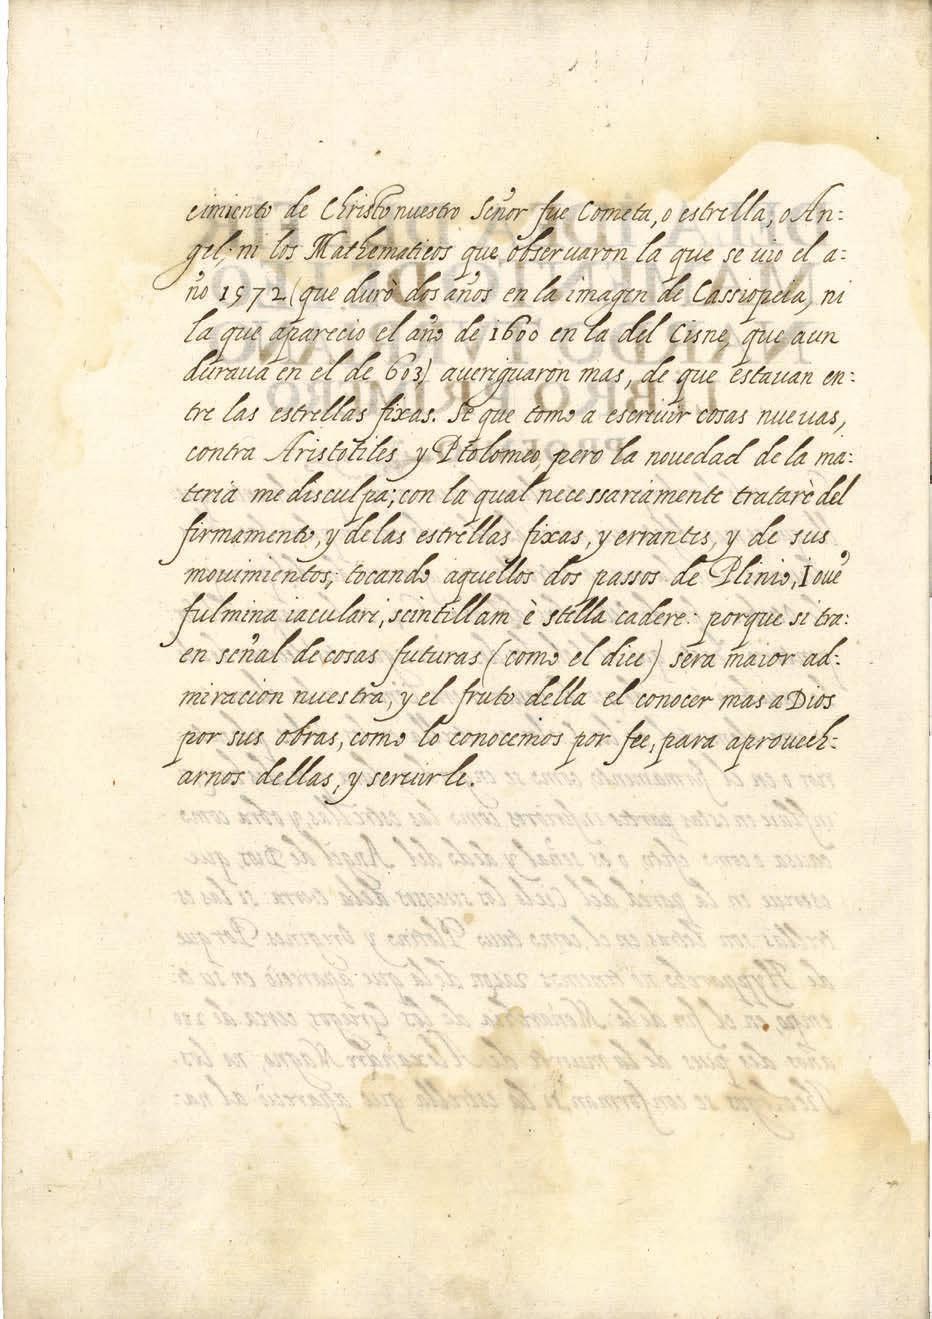 cimiento de Christo nuestro Señor fue Cometa, o estrella, o An:
gel; ni los Mathematicos que observaron la que se vio el a:
ño 1572 (que durò dos años en la imagen de Cassiopeia, ni
la que aparecio el año de 1600 en la del Cisne, que aun
durava en el de 603) averiguaron mas, de que estavan en:
tre las estrellas fixas. Se que tomo a escrivir cosas nuevas,
contra Aristotiles y Ptolomeo, pero la novedad de la ma:
teria me disculpa; con la qual necessariamente tratarè del
firmamento, y de las estrellas fixas, y errantes, y de sus
movimientos; tocando aquellos dos passos de Plinio, Iovẽ
fulmina iaculari, scintillam è stella cadere: porque si tra:
en señal de cosas futuras (como el dice) sera maior ad:
miracion nuestra, y el fruto della el conocer mas a Dios
por sus obras, como lo conocemos por fee, para aprovech:
arnos dellas, y servirle.